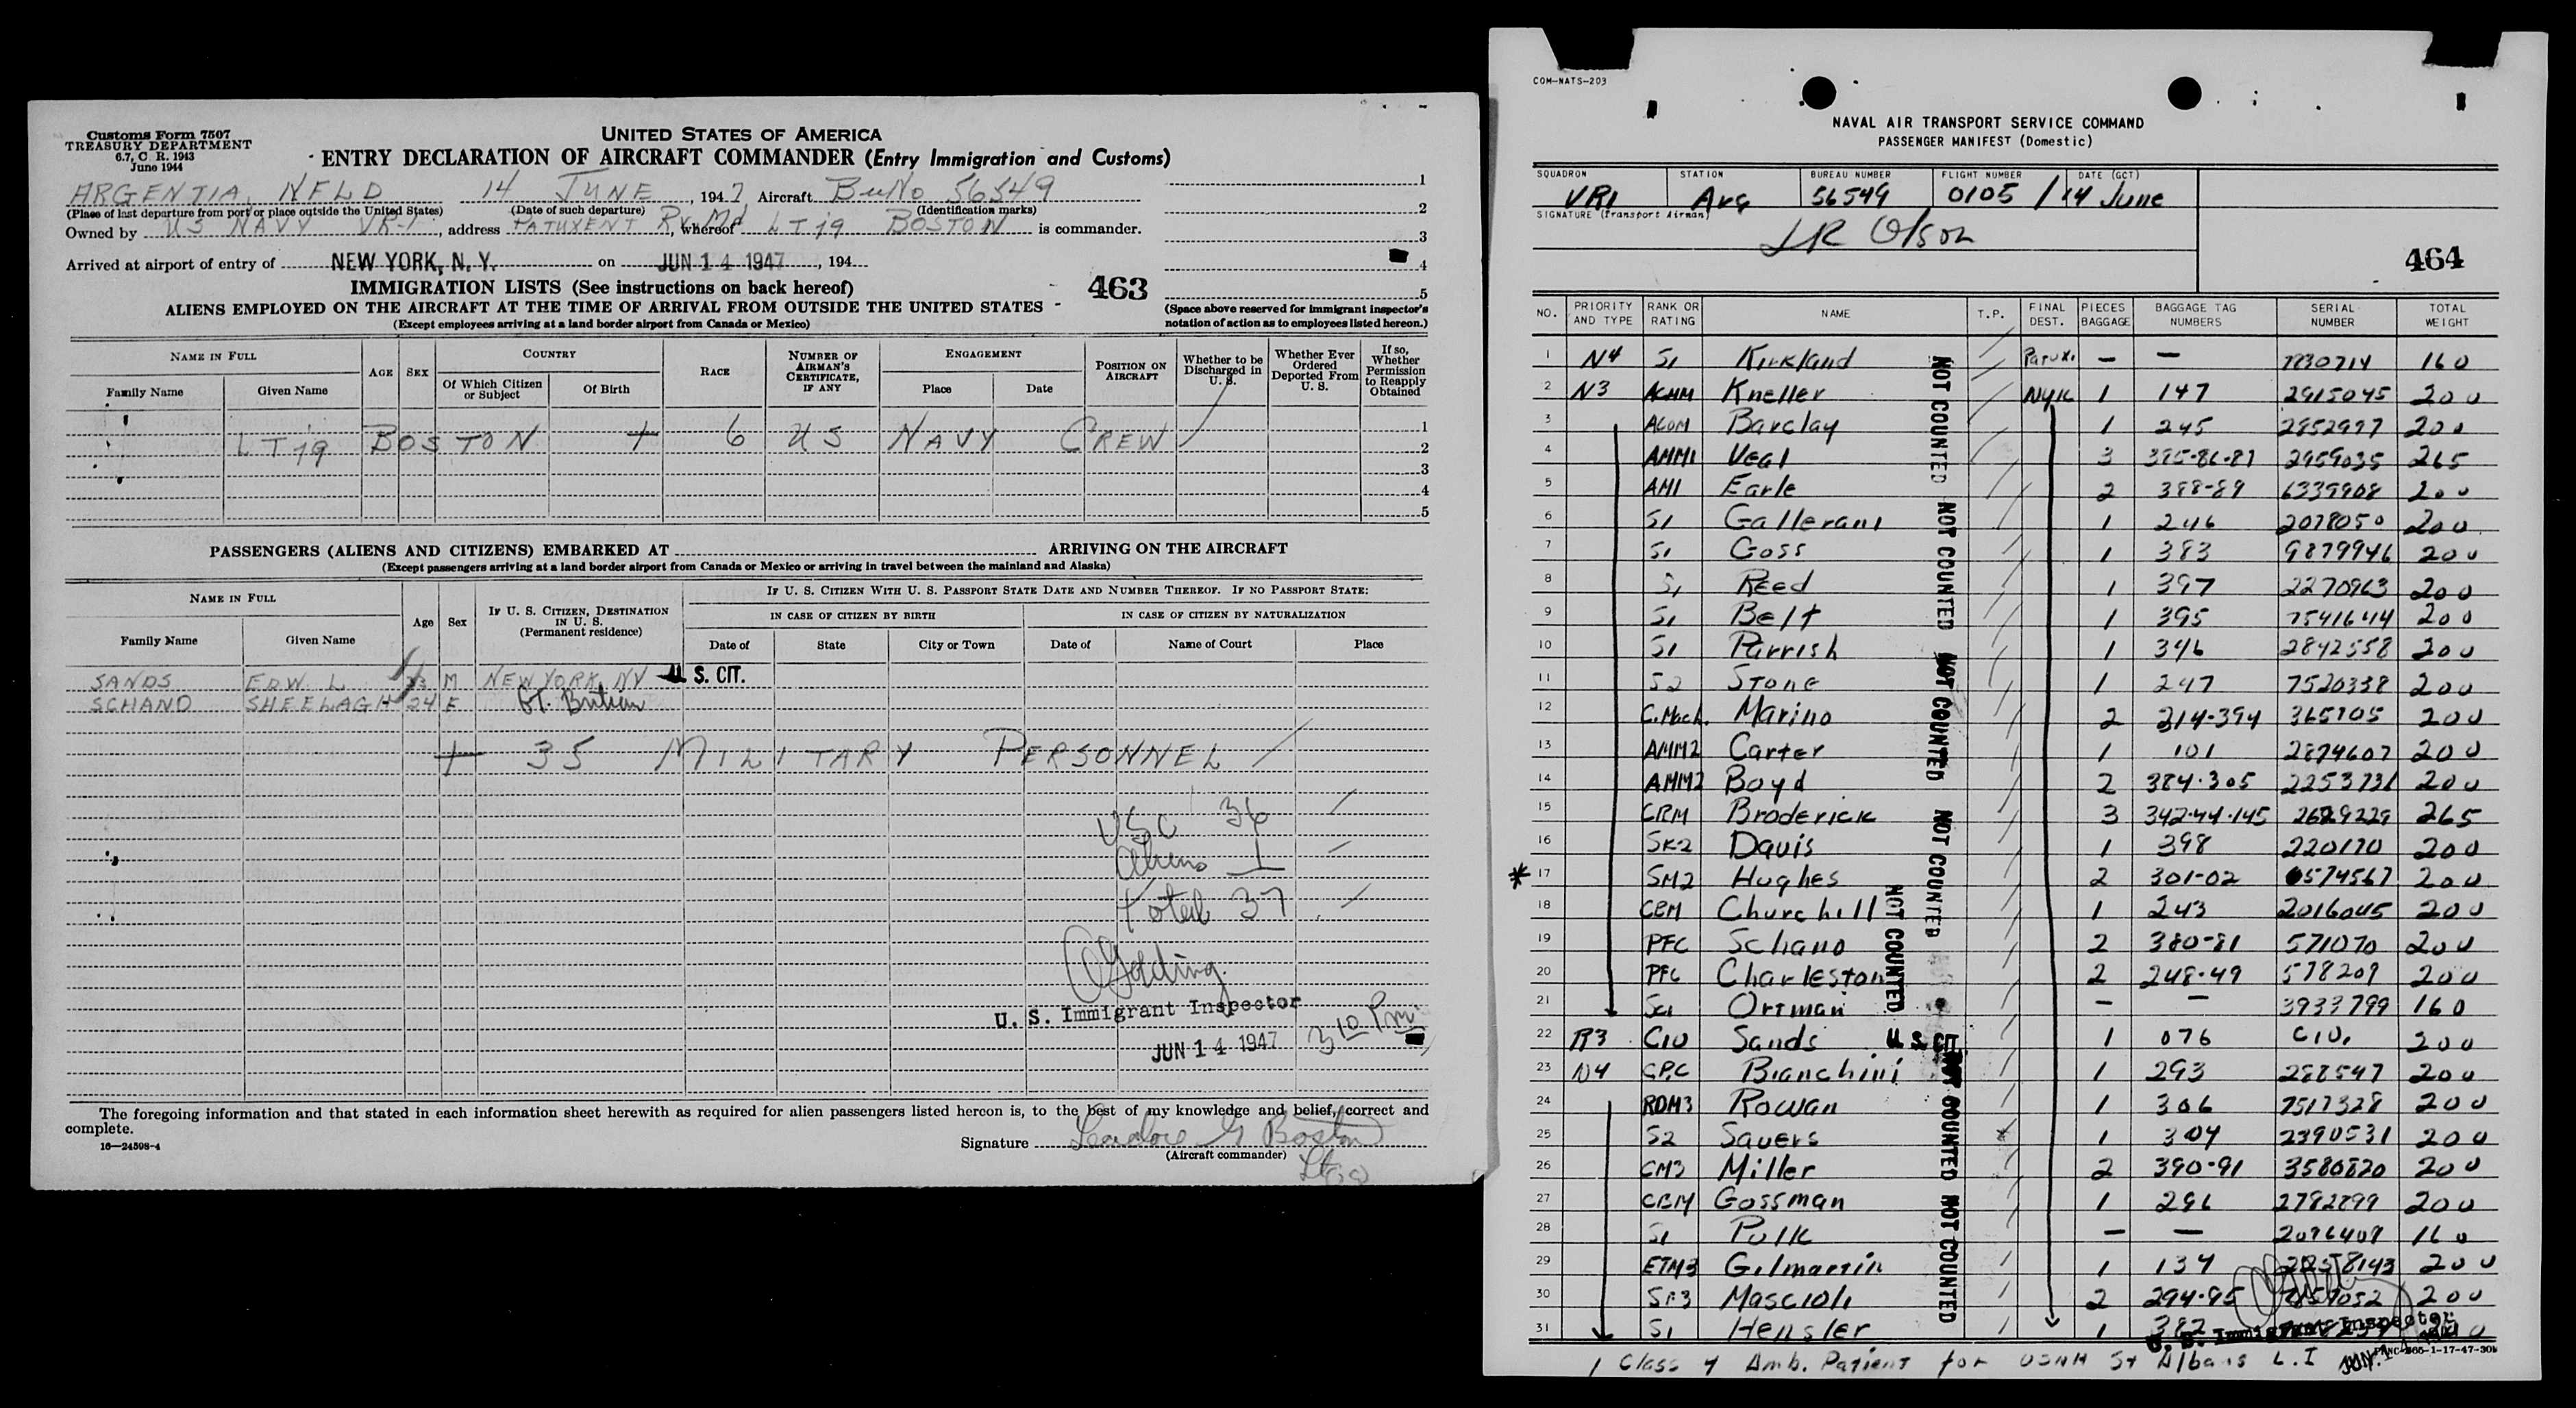 Customs Form 7507
TREASURY DEPARTMENT
6.7, C. R. 1943
June 1944
UNITED STATES OF AMERICA
ENTRY DECLARATION OF AIRCRAFT COMMANDER (Entry Immigration and Customs)
ARGENTIA, NFLD 14 JUNE, 1947, Aircraft BuNo 56549
(Place of last departure from port or place outside the United States) (Date of such departure) (Identification marks)
Owned by US NAVY VR-1, address PATUXENT Rv. Md, whereof LTjg BOSTON is commander.
Arrived at airport of entry of NEW YORK, N. Y. on JUN 14 1947, 194
1
2
3
4
5
IMMIGRATION LISTS (See instructions on back hereof) 463
ALIENS EMPLOYED ON THE AIRCRAFT AT THE TIME OF ARRIVAL FROM OUTSIDE THE UNITED STATES
(Except employees arriving at a land border airport from Canada or Mexico)
(Space above reserved for immigrant inspector's notation of action as to employees listed hereon.)
NAME IN FULL
Family Name Given Name
AGE SEX
COUNTRY
Of Which Citizen or Subject Of Birth
RACE
NUMBER OF AIRMAN'S CERTIFICATE, IF ANY
ENGAGEMENT
Place Date
POSITION ON AIRCRAFT
Whether to be Discharged in U. S.
Whether Ever Ordered Deported From U. S.
If so, Whether Permission to Reapply Obtained
1
LTjg BOSTON + 6 US NAVY CREW 2
3
4
5
PASSENGERS (ALIENS AND CITIZENS) EMBARKED AT ARRIVING ON THE AIRCRAFT
(Except passengers arriving at a land border airport from Canada or Mexico or arriving in travel between the mainland and Alaska)
NAME IN FULL
Family Name Given Name
Age Sex
IF U. S. CITIZEN, DESTINATION IN U. S. (Permanent residence)
IF U. S. CITIZEN WITH U. S. PASSPORT STATE DATE AND NUMBER THEREOF. IF NO PASSPORT STATE:
IN CASE OF CITIZEN BY BIRTH IN CASE OF CITIZEN BY NATURALIZATION
Date of State City or Town Date of Name of Court Place
SANDS EDW. L M NEW YORK NY U. S. CIT.
SCHANO SHEELAGH 24 F Gt. Britian
+ 35 MILITARY PERSONNEL
USC 36
Aliens 1
Total 37
Golding
U. S. Immigrant Inspector
JUN 14 1947 3 10 Pm
The foregoing information and that stated in each information sheet herewith as required for alien passengers listed hereon is, to the best of my knowledge and belief, correct and complete.
16—24598-4
Signature Boston
(Aircraft commander)
Ltjg
COM-NATS-203
NAVAL AIR TRANSPORT SERVICE COMMAND
PASSENGER MANIFEST (Domestic)
SQUADRON STATION BUREAU NUMBER FLIGHT NUMBER DATE (GCT)
VR1 Arg 56549 0105 / 14 June
SIGNATURE (Transport Airman)
JR Olson
464
NO. PRIORITY AND TYPE RANK OR RATING NAME T.P. FINAL DEST. PIECES BAGGAGE BAGGAGE TAG NUMBERS SERIAL NUMBER TOTAL WEIGHT
1 N4 S1 Kirkland Patuxt — — 7830714 160
2 N3 ACMM Kneller NYK 1 147 2915045 200
3 ACOM Barclay 1 245 2852977 200
4 AMM1 Veal 3 385-86-87 2959035 265
5 AM1 Earle 2 388-89 6339908 200
6 S1 Gallerani 1 246 2078050 200
7 S1 Goss 1 383 9879946 200
8 S1 Reed 1 397 2270963 200
9 S1 Belt 1 395 7541644 200
10 S1 Parrish 1 346 2842558 200
11 S2 Stone 1 247 7520338 200
12 C.Mach. Marino 2 314-394 365705 200
13 AMM2 Carter 1 101 2874607 200
14 AMM2 Boyd 2 384-305 2253731 200
15 CRM Broderick 3 342-44-145 2629229 265
16 SK2 Davis 1 398 220170 200
* 17 SM2 Hughes 2 301-02 6574567 200
18 CBM Churchill 1 243 2016045 200
19 PFC Schano 2 380-81 571070 200
20 PFC Charleston 2 248-49 578209 200
21 Sc1 Ortman — — 3933799 160
22 R3 CIV Sands U. S. CIT. 1 076 CIV. 200
23 N4 CPC Bianchini 1 293 288547 200
24 RDM3 Rowan 1 306 7517328 200
25 S2 Sauers 1 304 2390531 200
26 CM3 Miller 2 390-91 3580820 200
27 CBM Gossman 1 296 2782899 200
28 S1 Polk — — 2076409 160
29 ETM3 Gilmartin 1 134 200
30 Mascioli 2 294-95 200
31 S1 Hensler 1 382
NOT COUNTED NOT COUNTED NOT COUNTED NOT COUNTED NOT COUNTED NOT COUNTED NOT COUNTED
U. S. Immigrant Inspector
1 Class 4 Amb. Patient for USNH St Albans L.I